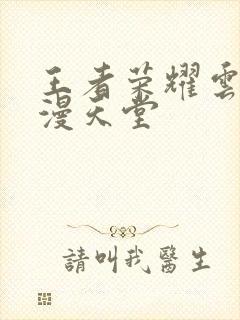 王者荣耀雲
漫天堂
請叫我醫生